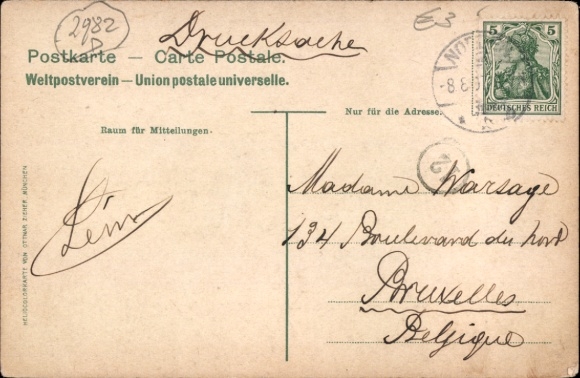 2982
D
E3
Drucksache
Postkarte — Carte Postale.
Weltpostverein — Union postale universelle.
5 5
DEUTSCHES REICH
NOR
8.8.
Nur für die Adresse.
Raum für Mitteilungen.
12
Madame Warsage
134 Boulevard du nord
Bruxelles
Belgique
HELIOCOLORKARTE VON OTTMAR ZIEHER, MÜNCHEN